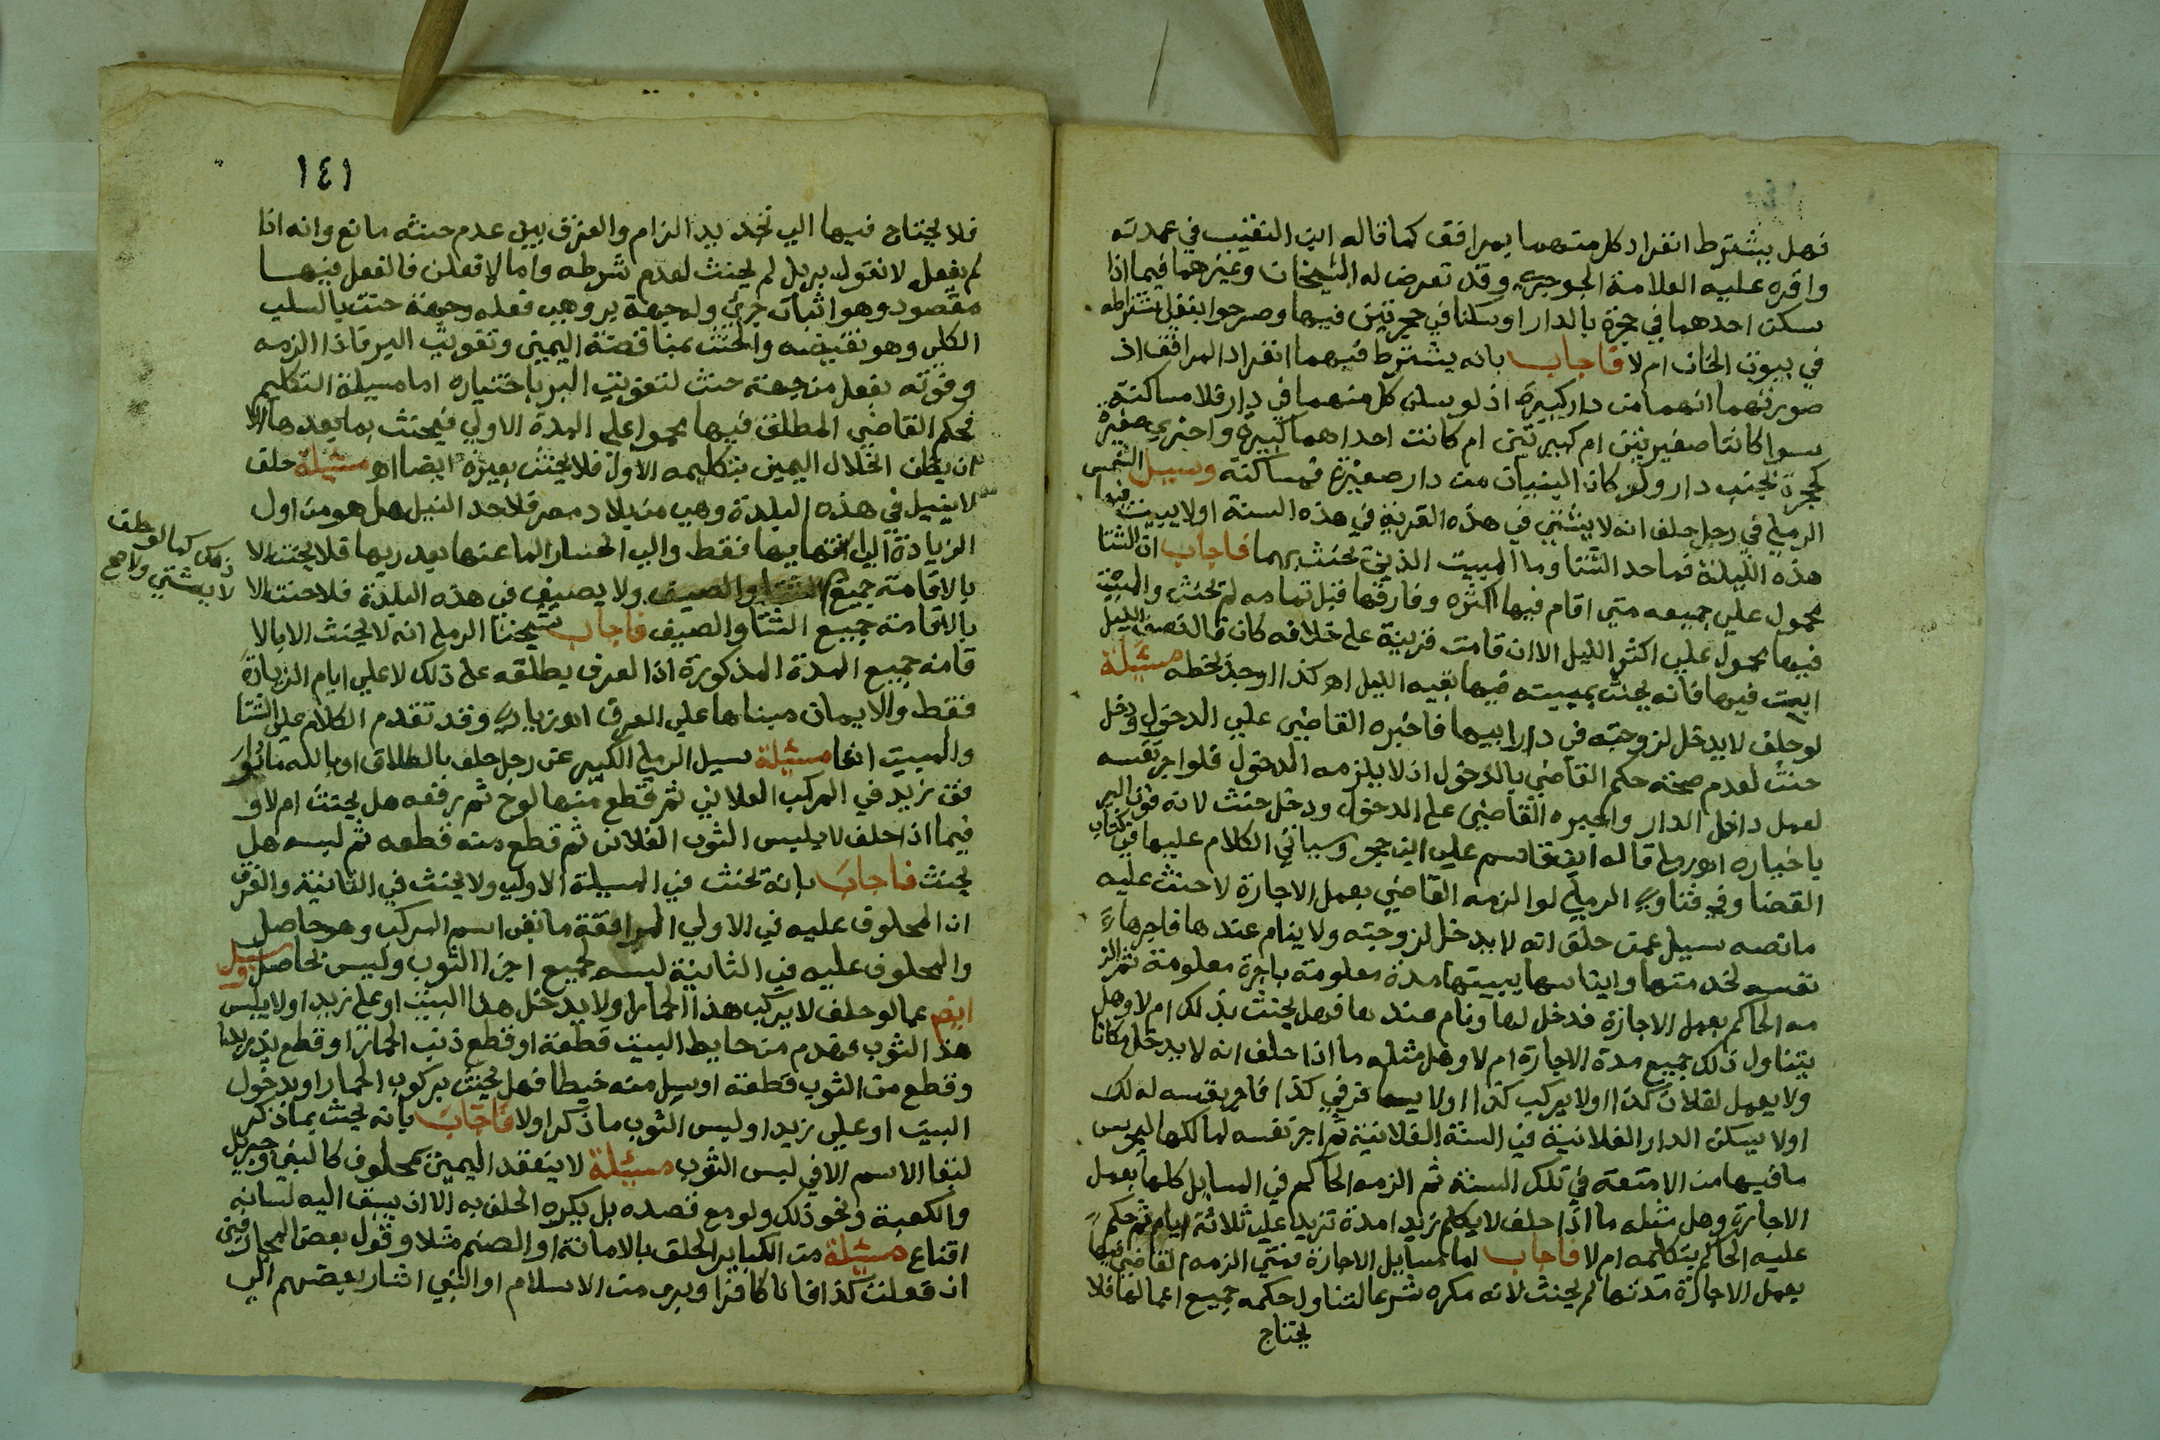 فهل يشترط انفراد كل منهما بمرافق كما قاله ابن النقيب في عمدته
واقره عليه العلامة الجوجري وقد تعرض له الشيخان وغيرهما فيما اذا
سكن احدهما في حجرة بالدار او سكنا في حجرتين فيها وصرحوا بنفي اشتراطه
في بيوت الخان ام لا فاجاب بانه يشترط فيهما انفراد المرافق اذ
صورتهما انهما من دار كبيرة اذ لو سكن كل منهما في دار فلا مساكنة
سوا كانتا صغيرتين ام كبيرتين ام كانت احداهما كبيرة واخرى صغيرة
كحجرة بجنب دار ولو كان البيتان من دار صغيرة فمساكنة وسيل الشمس
الرملي في رجل حلف انه لا يشتي في هذه القرية في هذه السنة او لا يبيت فيها
هذه الليلة فما حد الشتا وما المبيت الذي يحنث بهما فاجاب ان الشتا
محمول علي جميعه متي اقام فيها اكثره وفارقها قبل تمامه لم يحنث والمبيت
فيها محمول علي اكثر الليل الا ان قامت قرينة على خلافه كان قال نصف الليل
ابيت فيها فانه يحنث بمبيته فيها بقية الليل اهـ كذا وجد بخطه مسئلة
لو حلف لا يدخل لزوجته في دار ابيها فاجبره القاضي علي الدخول ودخل
حنث لعدم صحة حكم القاضي بالدخول اذ لا يلزمه الدخول فلو اجر نفسه
لعمل داخل الدار واجبره القاضي على الدخول ودخل حنث لانه فوت البر
باختياره اهـ رملي قاله ابن قاسم علي ابن حجر وسياتي الكلام عليها في كتاب
القضا وفي فتاوي الرملي لو الزمه القاضي بعمل الاجارة لا حنث عليه
ما نصه سيل عمن حلف انه لا يدخل لزوجته ولا ينام عندها فاجرها
نفسه لخدمتها وايناسها ببيتها مدة معلومة باجرة معلومة ثم الز
مه الحاكم بعمل الاجازة فدخل لها ونام عندها فهل يحنث بذلك ام لا وهل
يتناول ذلك جميع مدة الاجارة ام لا وهل مثله ما اذا حلف انه لا يدخل مكانا
ولا يعمل لفلان كذا او لا يركب كذا او لا يسافر في كذا فاجر نفسه لذلك
او لا يسكن الدار الفلانية في السنة الفلانية ثم اجر نفسه لمالكها ليحرس
ما فيها من الامتعة في تلك السنة ثم الزمه الحاكم في المسايل كلها بعمل
الاجارة وهل مثله ما اذا حلف لا يكلم زيدا مدة تزيد علي ثلاثة ايام ثم حكم
عليه الحاكم بتكلمه ام لا فاجاب اما مسايل الاجارة فمتي الزمه القاضي فيها
بعمل الاجارة مدتها لم يحنث لانه مكره شرعا لتناول حكمه جميع اعمالها فلا
يحتاج
١٤١
فلا يحتاج فيها الي تجديد الزام والفرق بين عدم حنثه مانع وانه اذا
لم يفعل لا نقول بر بل لم يحنث لعدم شرطه واما لافعلن فالفعل فيها
مقصود وهو اثبات جزئي وله جهة بر وهي فعله وجهة حنث بالسلب
الكلي وهو نقيضه والحنث بمناقضة اليمين وتفويت البر فاذا الزمه
وفوته بفعل من جهته حنث لتفويت البر باختياره اما مسيلة التكليم
فحكم القاضي المطلق فيها محمول علي المدة الاولي فيحنث بما بعدها الا
ان يظن انحلال اليمين بتكليمه الاول فلا يحنث بغيره ايضا اهـ مسئلة حلف
لا ينيل في هذه البلدة وهي من بلاد مصر فلاحد النيل هل هو من اول
الزيادة الي انتهايها فقط والي انحسار الماعنها بعد ريها فلا يحنث الا
بالاقامة جميع الشتا والصيف ولا يصيف في هذه البلدة فلا حنث الا
ذلك كما لو حلف
لا يشتي ولا صح
بالاقامة جميع الشتا والصيف فاجاب شيخنا الرملي انه لا يحنث الا بالا
قامة جميع المدة المذكورة اذ العرف يطلقه على ذلك لا علي ايام الزيادة
فقط والايمان مبناها علي العرف اهـ زيادي وقد تقدم الكلام علي الشتا
والمبيت انفا مسئلة سيل الرملي الكبير عن رجل حلف بالطلاق او بالله ما يُوَ
فق زيد في المركب الفلاني ثم قطع منها لوح ثم رفعه هل يحنث ام لا و
فيما اذا حلف لا يلبس الثوب الفلاني ثم قطع منه قطعه ثم لبسه هل
يحنث فاجاب بانه يحنث في المسيلة الاولي ولا يحنث في الثانية والفرق
ان المحلوف عليه في الاولي المرافقة ما بقي اسم المركب وهو حاصل
والمحلوف عليه في الثانية لبسه لجميع اجزا الثوب وليس بحاصل وسيل
ايضا عما لو حلف لا يركب هذا الحمار او لا يدخل هذا البيت او علي زيد او لا يلبس
هذا الثوب فهدم من حايط البيت قطعة او قطع ذنب الحمار او قطع يد زيد
وقطع من الثوب قطعة او سل منه خيطا فهل يحنث بركوب الحمار او بدخول
البيت او علي زيد او لبس الثوب ما ذكر اولا فاجاب بانه يحنث بما ذكر
لبقا الاسم الا في لبس الثوب مسئلة لا ينعقد اليمين بمخلوف كالنبي وجبريل
والكعبة ونحو ذلك ولو مع قصده بل يكره الحلف به الا ان يسبق اليه لسانه
اقناع مسئلة من الكباير الحلف بالامانة او الصنم مثلا وقول بعض المجازفين
ان فعلت كذا فانا كافر او بري من الاسلام او النبي اشار بعضهم الي